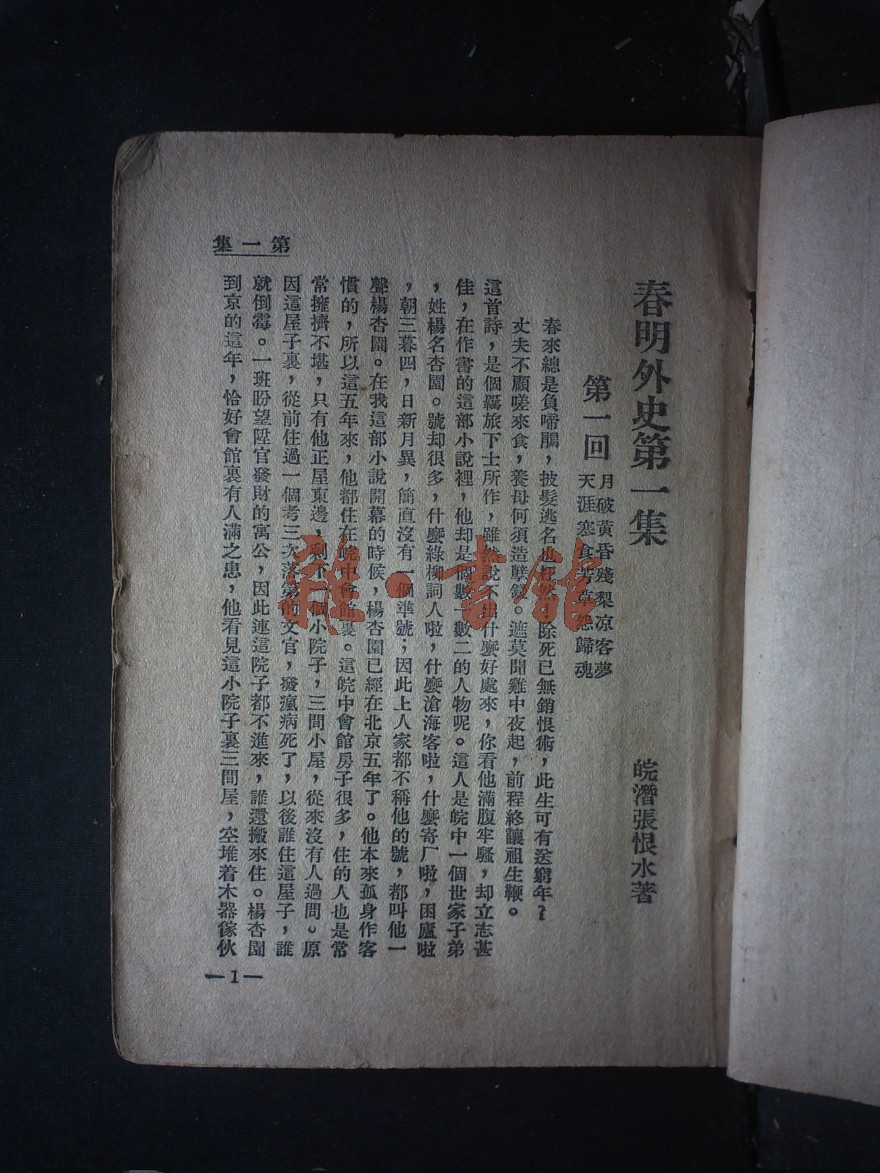 春明外史第一集
皖潛張恨水著
第一回
月破黃昏殘梨凉客夢
天涯寒食芳草怨歸魂
春來總是負啼鵑，披髮逃名也
除死已無銷恨術，此生可有送窮年？
丈夫不顧嗟來食，養母何須造孽錢。遮莫聞雞中夜起，前程終讓祖生鞭。
這首詩，是個羈旅下士所作，雖然說不出什麼好處來，你看他滿腹牢騷，却立志甚
佳，在作書的這部小說裡，他却是個數一數二的人物呢。這人是皖中一個世家子弟
，姓楊名杏園。號却很多，什麼綠柳詞人啦，什麼滄海客啦，什麼寄厂啦，困廬啦
，朝三暮四，日新月異，簡直沒有一個準號；因此上人家都不稱他的號，都叫他一
聲楊杏園。在我這部小說開幕的時候，楊杏園已經在北京五年了。他本來孤身作客
慣的，所以這五年來，他都住在皖中會館裏。這皖中會館房子很多，住的人也是常
常擁擠不堪，只有他正屋東邊，剩下一個小院子，三間小屋，從來沒有人過問。原
因這屋子裏，從前住過一個考三次落第的文官，發瘋病死了，以後誰住這屋子，誰
就倒霉。一班盼望陞官發財的寓公，因此連這院子都不進來，誰還搬來住。楊杏園
到京的這年，恰好會館裏有人滿之患，他看見這小院子裏三間屋，空堆着木器傢伙
第一集
—1—
雜·書館